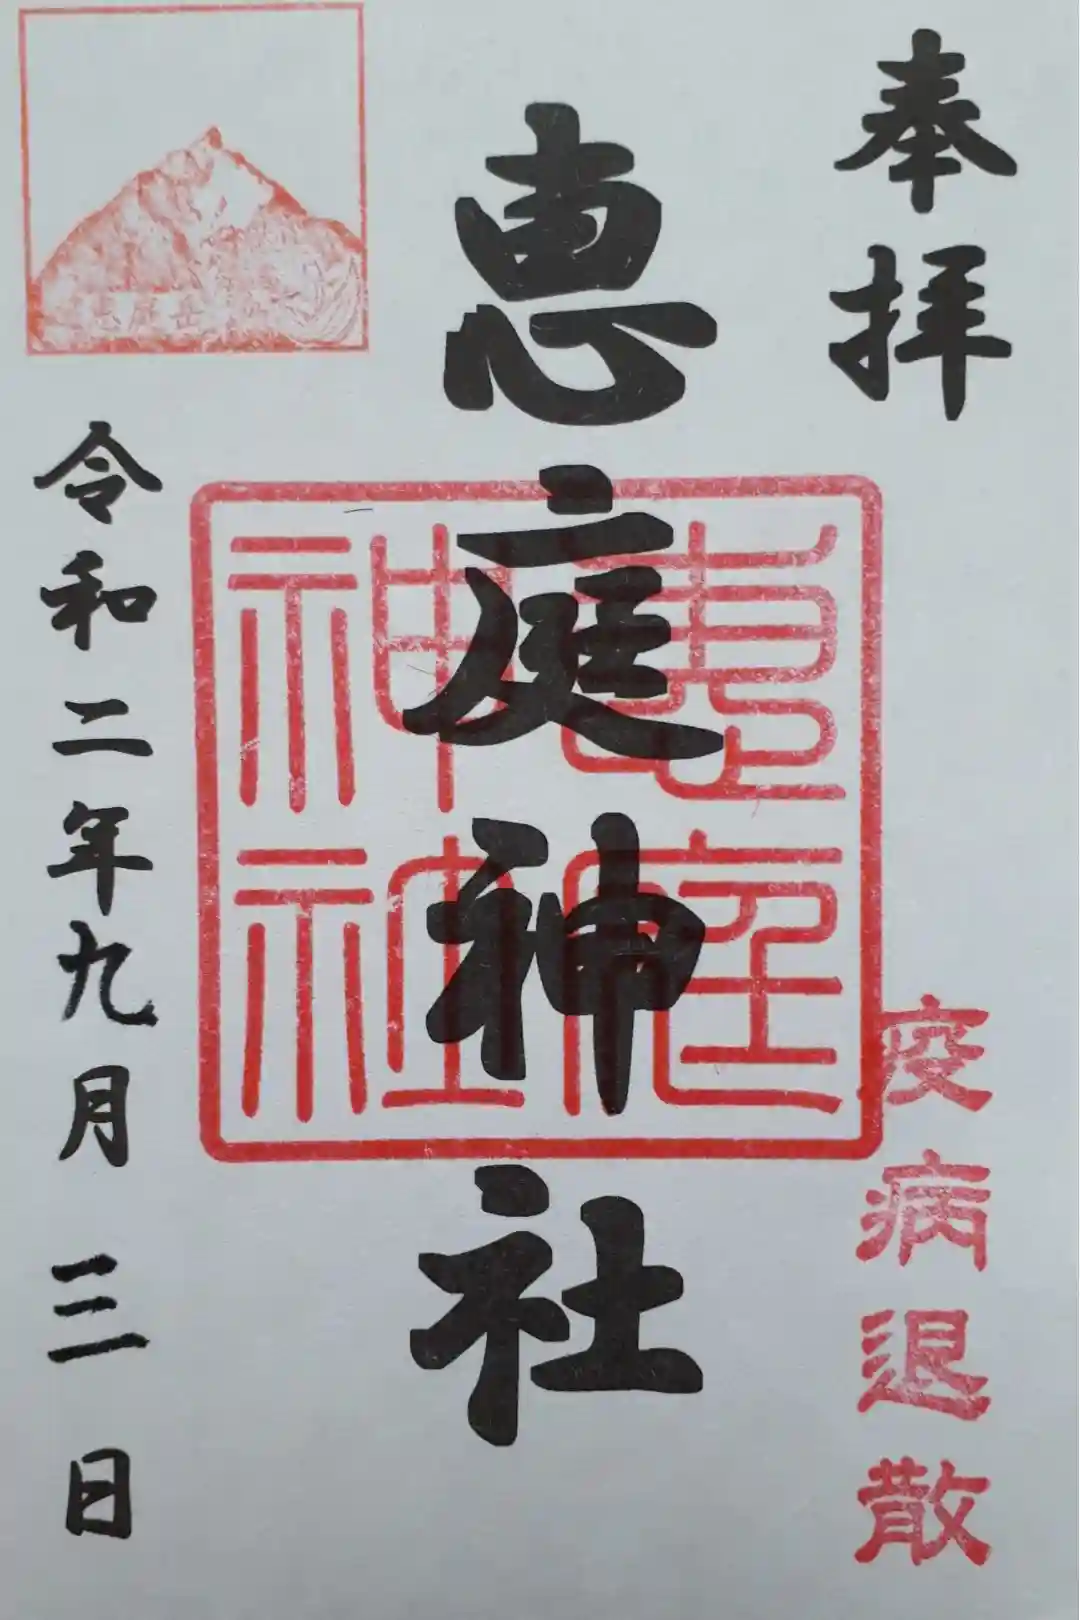 奉拝
疫病退散
恵庭神社
恵庭
神社
恵庭岳
令和二年九月三日